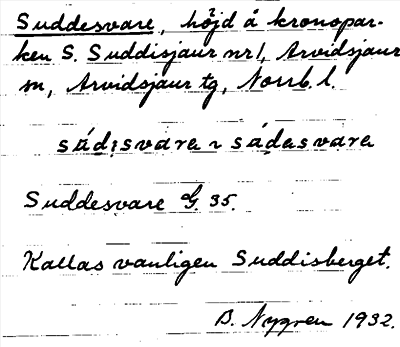 Suddesvare, höjd å kronopar-
ken S. Suddisjaur nr 1, Arvidsjaur
sn, Arvidsjaur tg, Norrb. l.
sádisvare ~ sádəsvare
Suddesvare G. 35.
Kallas vanligen Suddisberget.
B. Nygren 1932.